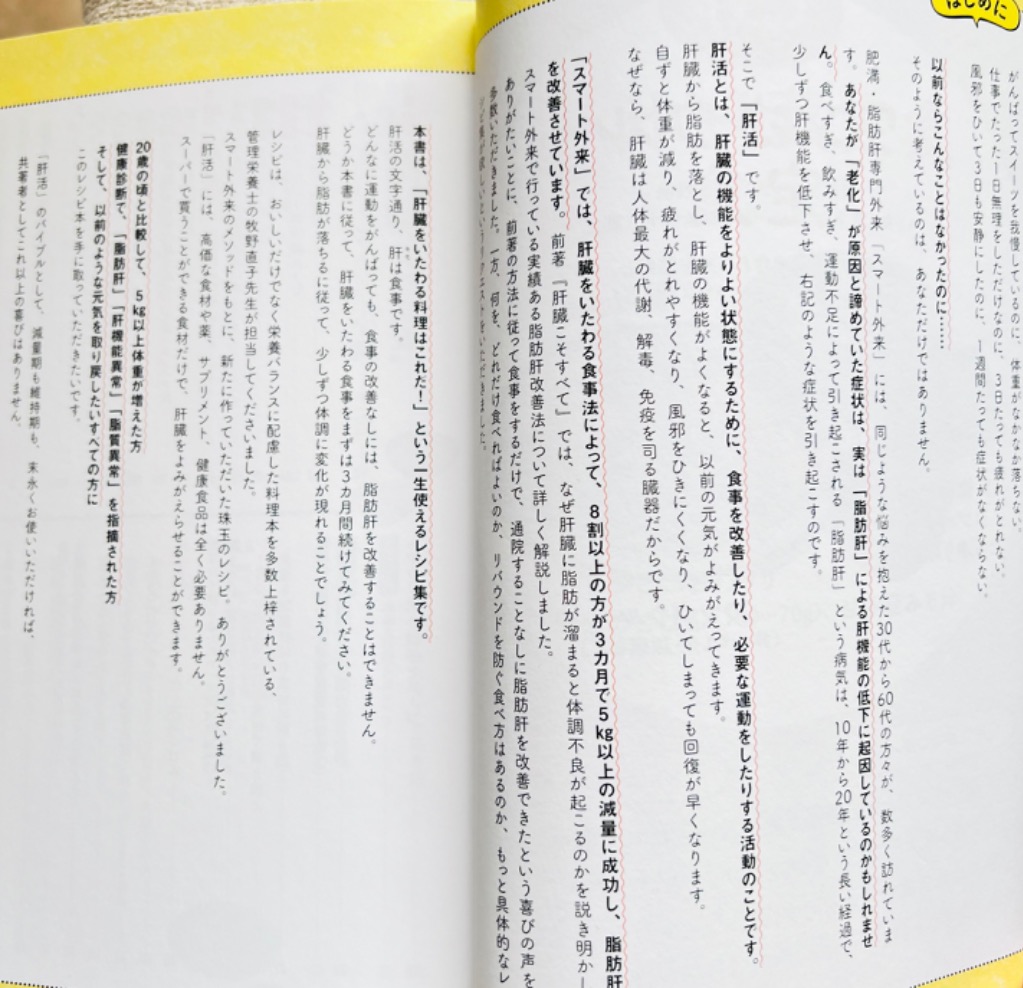 はじめに
がんばってスイーツを我慢しているのに、体重がなかなか落ちない。
仕事でたった1日無理をしただけなのに、3日たっても疲れがとれない。
風邪をひいて3日も安静にしたのに、1週間たっても症状がなくならない。
以前ならこんなことはなかったのに……
そのように考えているのは、あなただけではありません。
肥満・脂肪肝専門外来「スマート外来」には、同じような悩みを抱えた30代から60代の方々が、数多く訪れていま
す。あなたが「老化」が原因と諦めていた症状は、実は「脂肪肝」による肝機能の低下に起因しているのかもしれませ
ん。食べすぎ、飲みすぎ、運動不足によって引き起こされる「脂肪肝」という病気は、10年から20年という長い経過で、
少しずつ肝機能を低下させ、右記のような症状を引き起こすのです。
そこで「肝活」です。
肝活とは、肝臓の機能をよりよい状態にするために、食事を改善したり、必要な運動をしたりする活動のことです。
肝臓から脂肪を落とし、肝臓の機能がよくなると、以前の元気がよみがえってきます。
自ずと体重が減り、疲れがとれやすくなり、風邪をひきにくくなり、ひいてしまっても回復が早くなります。
なぜなら、肝臓は人体最大の代謝、解毒、免疫を司る臓器だからです。
「スマート外来」では、肝臓をいたわる食事法によって、8割以上の方が3カ月で5kg以上の減量に成功し、脂肪肝
を改善させています。前著『肝臓こそすべて』では、なぜ肝臓に脂肪が溜まると体調不良が起こるのかを説き明かし
スマート外来で行っている実績ある脂肪肝改善法について詳しく解説しました。
ありがたいことに、前著の方法に従って食事をするだけで、通院することなしに脂肪肝を改善できたという喜びの声を
多数いただきました。一方、何を、どれだけ食べればよいのか、リバウンドを防ぐ食べ方はあるのか、もっと具体的なレ
シピ集が欲しいというリクエストをいただきました。
本書は、「肝臓をいたわる料理はこれだ！」という一生使えるレシピ集です。
肝活の文字通り、肝は食事です。
どんなに運動をがんばっても、食事の改善なしには、脂肪肝を改善することはできません。
どうか本書に従って、肝臓をいたわる食事をまずは3カ月間続けてみてください。
肝臓から脂肪が落ちるに従って、少しずつ体調に変化が現れることでしょう。
レシピは、おいしいだけでなく栄養バランスに配慮した料理本を多数上梓されている、
管理栄養士の牧野直子先生が担当してくださいました。
スマート外来のメソッドをもとに、新たに作っていただいた珠玉のレシピ。ありがとうございました。
「肝活」には、高価な食材や薬、サプリメント、健康食品は全く必要ありません。
スーパーで買うことができる食材だけで、肝臓をよみがえらせることができます。
20歳の頃と比較して、5kg以上体重が増えた方
健康診断で、「脂肪肝」「肝機能異常」「脂質異常」を指摘された方
そして、以前のような元気を取り戻したいすべての方に
このレシピ本を手に取っていただきたいです。
「肝活」のバイブルとして、減量期も維持期も、末永くお使いいただければ、
共著者としてこれ以上の喜びはありません。